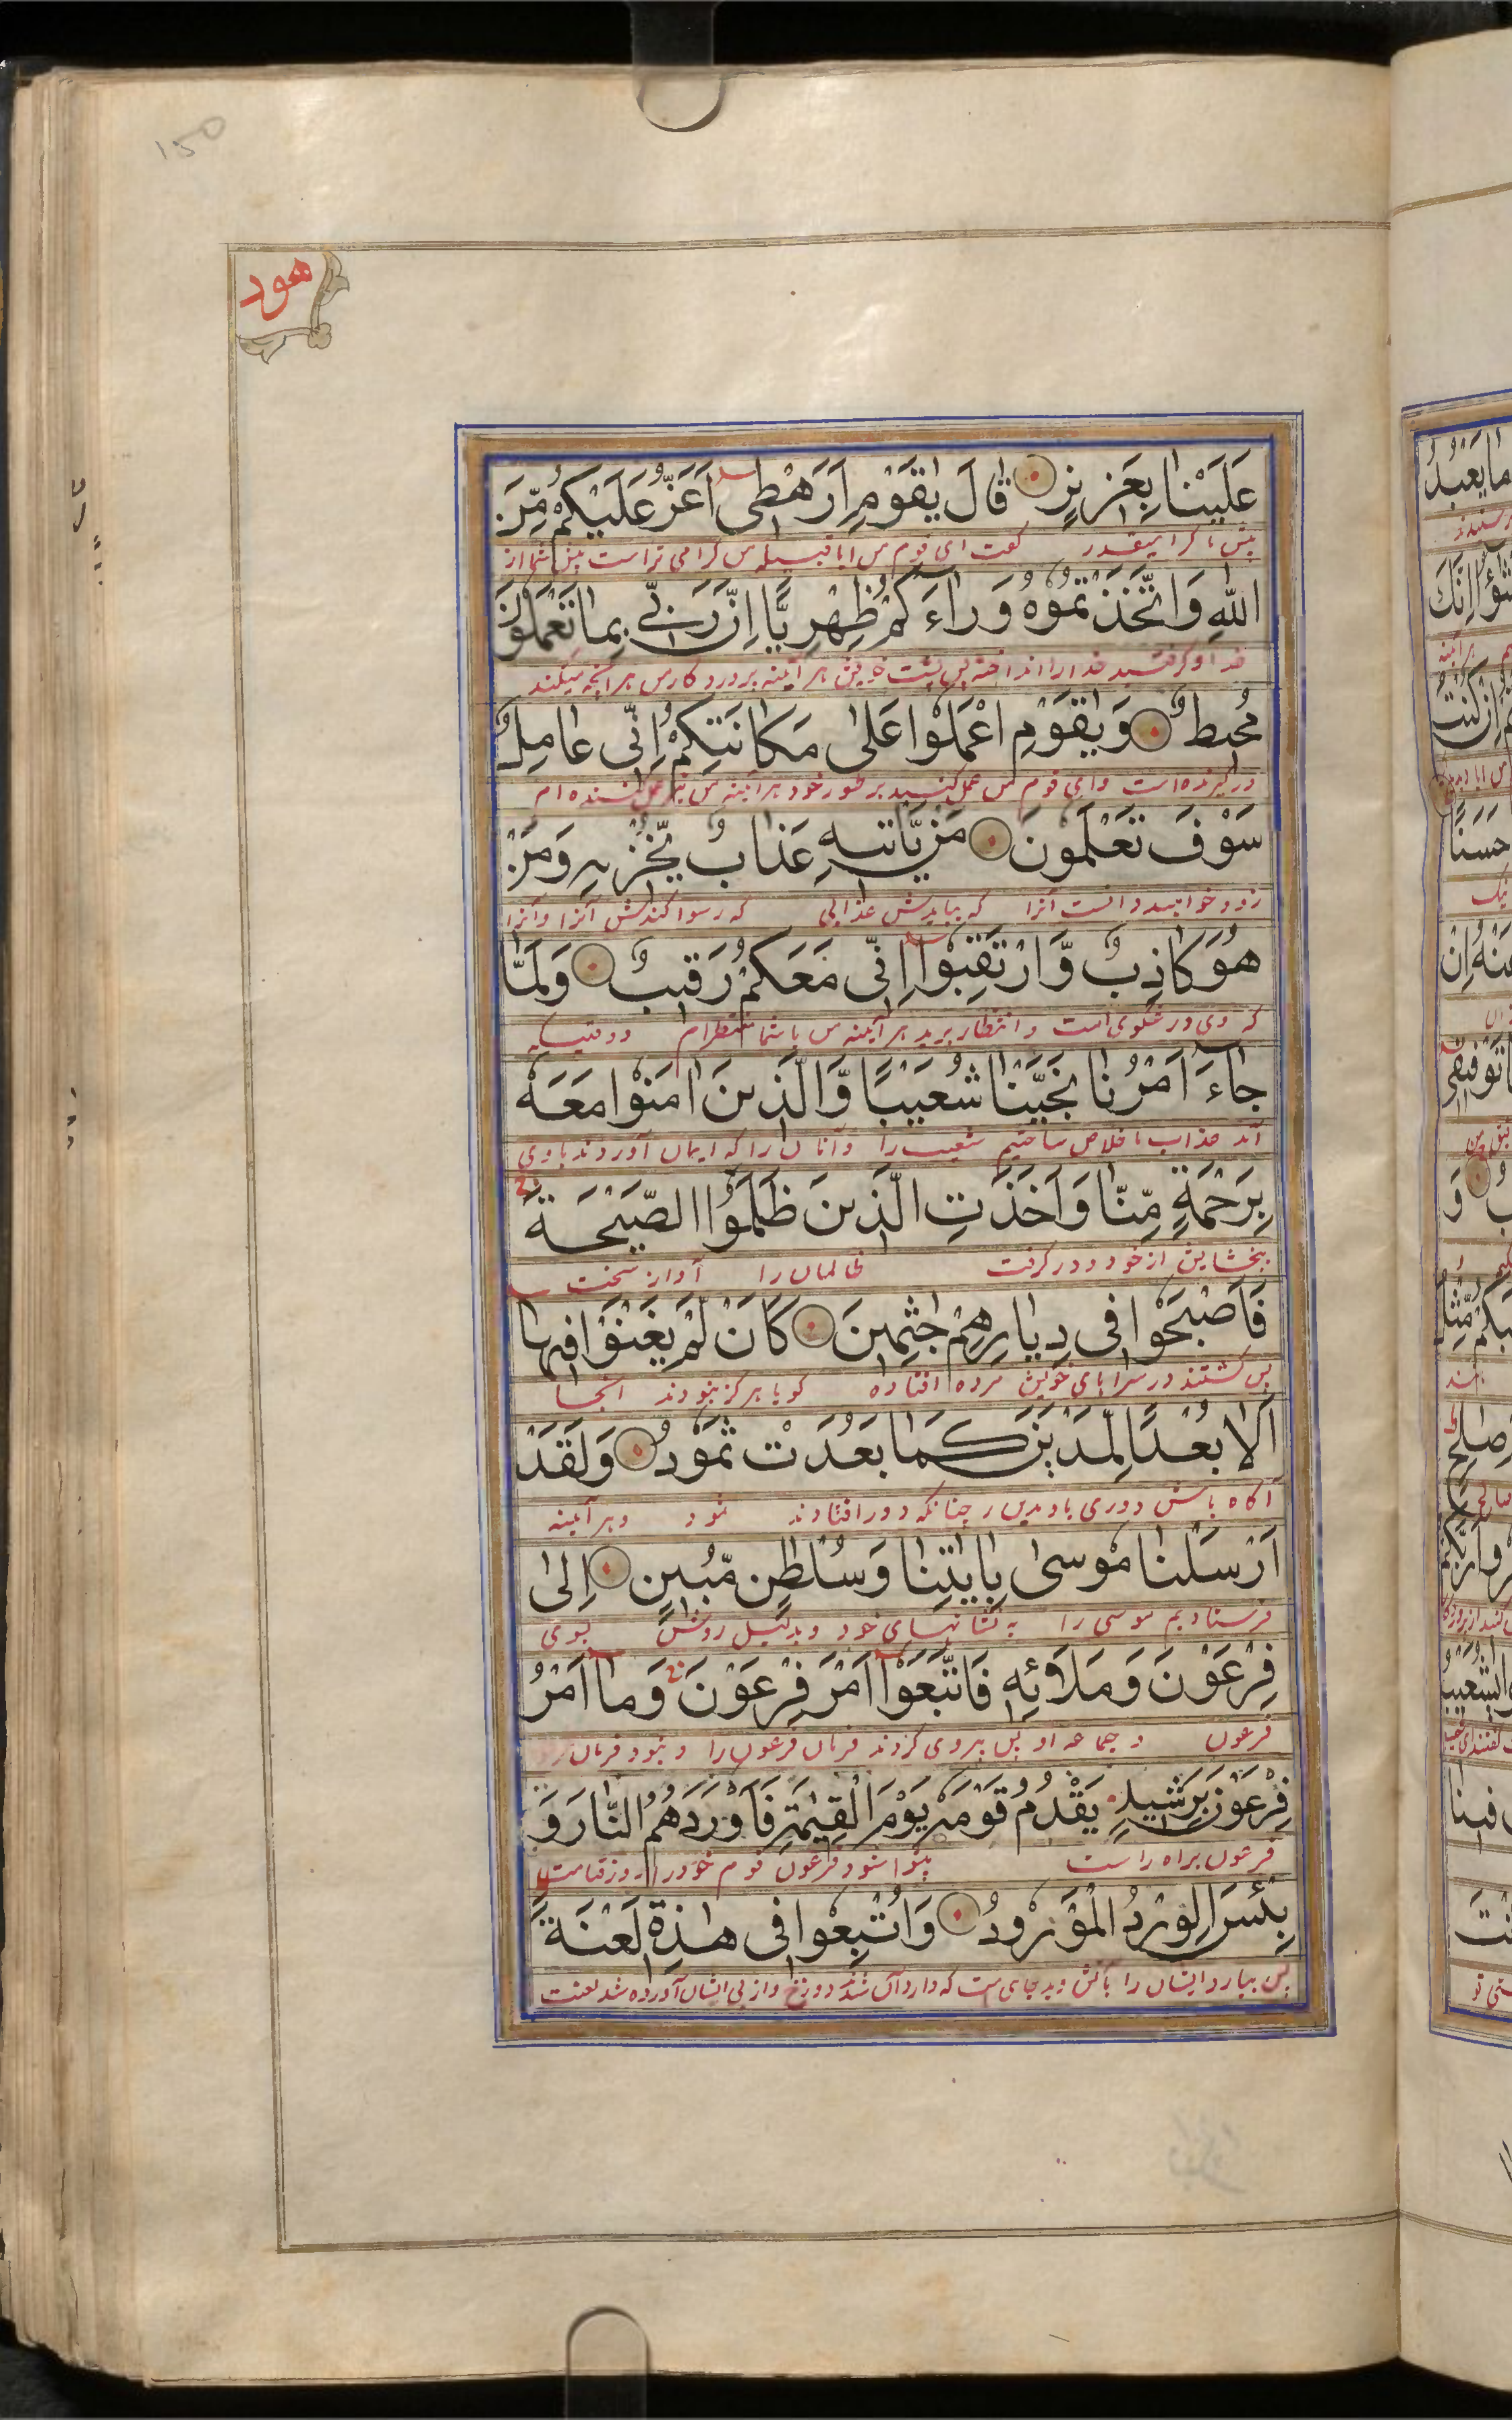 150
هود
عَلَيْنَا بِعَزِيْزٍ قَالَ يٰقَوْمِ اَرَهْطِىْ اَعَزُّ عَلَيْكُمْ مِّنَ
گفت ای قوم من ایا قبیله من گرامی تر است شما از
اللهِ وَاتَّخَذْتُمُوْهُ وَرَاءَكُمْ ظِهْرِيًّا اِنَّ رَبِّىْ بِمَا تَعْمَلُوْنَ
خدا و گرفتید خدا را انداخته پس پشت خویش هر آیینه پروردگار من بهر آنچه میکنید
مُحِيْطٌ وَيٰقَوْمِ اعْمَلُوْا عَلٰى مَكَانَتِكُمْ اِنِّىْ عَامِلٌ
در گیرنده است و ای قوم من عمل کنید بر طور خود هر آیینه من نیز عمل کننده ام
سَوْفَ تَعْلَمُوْنَ مَنْ يَّاْتِيْهِ عَذَابٌ يُّخْزِيْهِ وَمَنْ
زود خواهید دانست آنرا که بیایدش عذابی که رسوا کندش آنرا و آنرا
هُوَ كَاذِبٌ وَّارْتَقِبُوْا اِنِّىْ مَعَكُمْ رَقِيْبٌ وَلَمَّا
که وی دروغگوی است و انتظار برید هر آیینه من با شما منتظرام و وقتیکه
جَاءَ اَمْرُنَا نَجَّيْنَا شُعَيْبًا وَّالَّذِيْنَ اٰمَنُوْا مَعَهٗ
آمد عذاب ما خلاص ساختیم شعیب را و آنان را که ایمان آوردند با وی
بِرَحْمَةٍ مِّنَّا وَاَخَذَتِ الَّذِيْنَ ظَلَمُوا الصَّيْحَةُ
ببخشایش از خود و در گرفت ظالمان را آواز سخت
فَاَصْبَحُوْا فِىْ دِيَارِهِمْ جٰثِمِيْنَ كَاَنْ لَّمْ يَغْنَوْا فِيْهَا
پس گشتند در سراهای خویش مرده افتاده گویا هرگز نبودند آنجا
اَلَا بُعْدًا لِّمَدْيَنَ كَمَا بَعِدَتْ ثَمُوْدُ وَلَقَدْ
آگاه باش دوری باد مدین را چنانکه دور افتادند ثمود و هر آیینه
اَرْسَلْنَا مُوْسٰى بِاٰيٰتِنَا وَسُلْطٰنٍ مُّبِيْنٍ اِلٰى
فرستادیم موسی را به نشانهای خود و بدلیل روشن بسوی
فِرْعَوْنَ وَمَلَا۟ئِهٖ فَاتَّبَعُوْا اَمْرَ فِرْعَوْنَ وَمَا اَمْرُ
فرعون و جماعه او پس پیروی کردند فرمان فرعون را و نبود فرمان
فِرْعَوْنَ بِرَشِيْدٍ يَقْدُمُ قَوْمَهٗ يَوْمَ الْقِيٰمَةِ فَاَوْرَدَهُمُ النَّارَ وَ
فرعون براه راست پیشوا شود فرعون قوم خود را روز قیامت
بِئْسَ الْوِرْدُ الْمَوْرُوْدُ وَاُتْبِعُوْا فِىْ هٰذِهٖ لَعْنَةً
پس بیارد ایشان را بآتش و بد جای است که وارد آن شدند دوزخ و از پی ایشان آورده شد لعنت